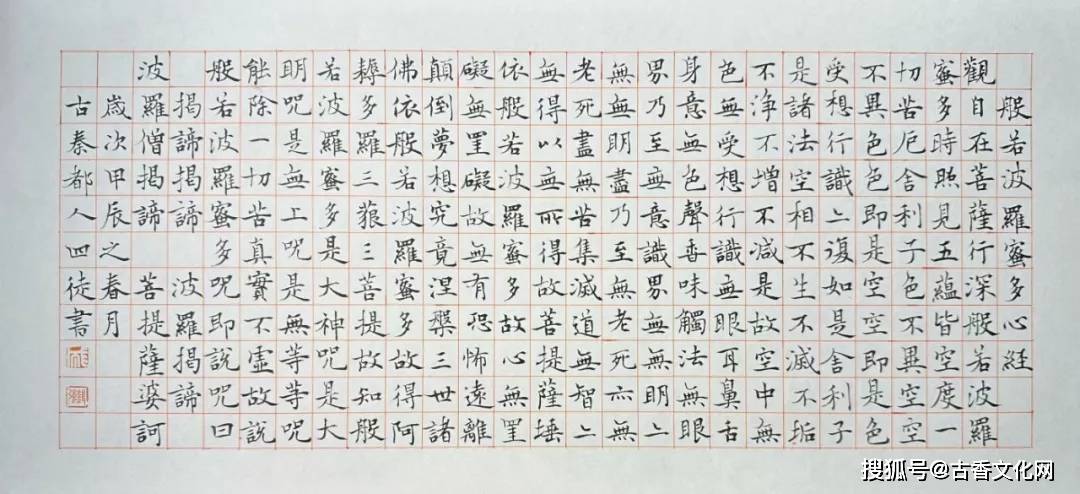 般若波羅蜜多心経
觀自在菩薩行深般若波羅
蜜多時照見五蘊皆空度一
切苦厄舍利子色不異空空
不異色色即是空空即是色
受想行識亦復如是舍利子
是諸法空相不生不滅不垢
不淨不增不減是故空中無
色無受想行識無眼耳鼻舌
身意無色聲香味觸法無眼
界乃至無意識界無無明亦
無無明盡乃至無老死亦無
老死盡無苦集滅道無智亦
無得以無所得故菩提薩埵
依般若波羅蜜多故心無罣
礙無罣礙故無有恐怖遠離
顛倒夢想究竟涅槃三世諸
佛依般若波羅蜜多故得阿
耨多羅三藐三菩提故知般
若波羅蜜多是大神咒是大
明咒是無上咒是無等等咒
能除一切苦真實不虛故說
般若波羅蜜多咒即說咒曰
揭諦揭諦 波羅揭諦
波羅僧揭諦 菩提薩婆訶
歲次甲辰之春月
古秦都人四徒書
搜狐号@古香文化网